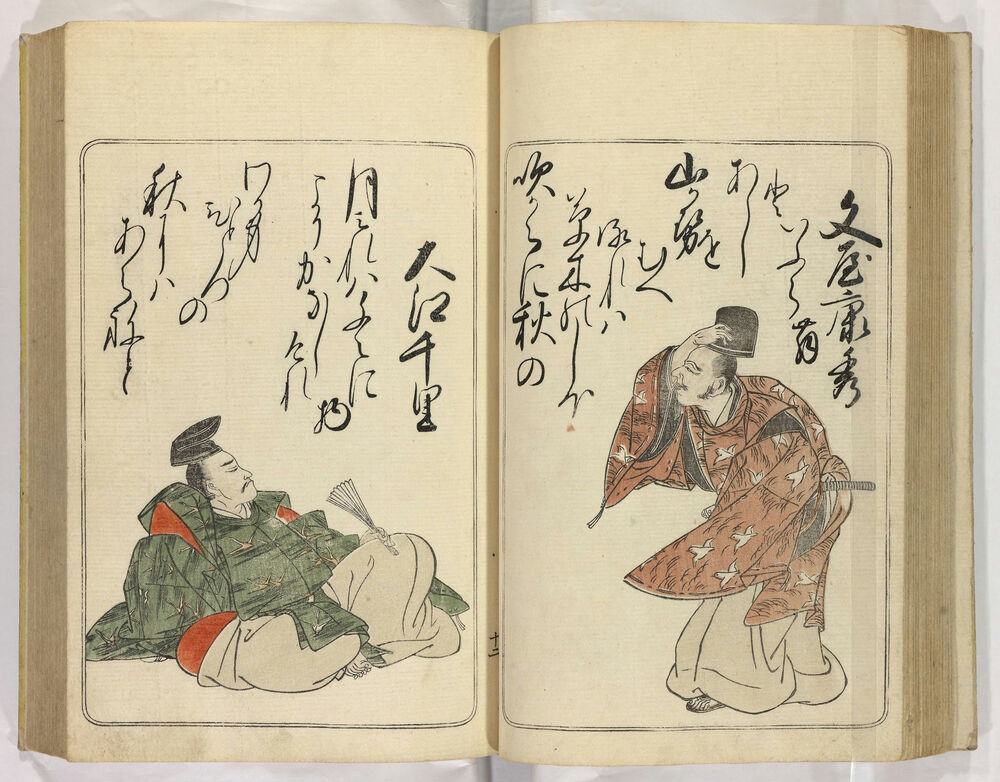 文屋康秀
吹からに秋の
草木のしほ
るれハ
むへ
山風を
あらし
といふらん
大江千里
月みれハちゝに
物
こそかなし
けれ
わか身
ひとつの
秋にハ
あらねと
十二